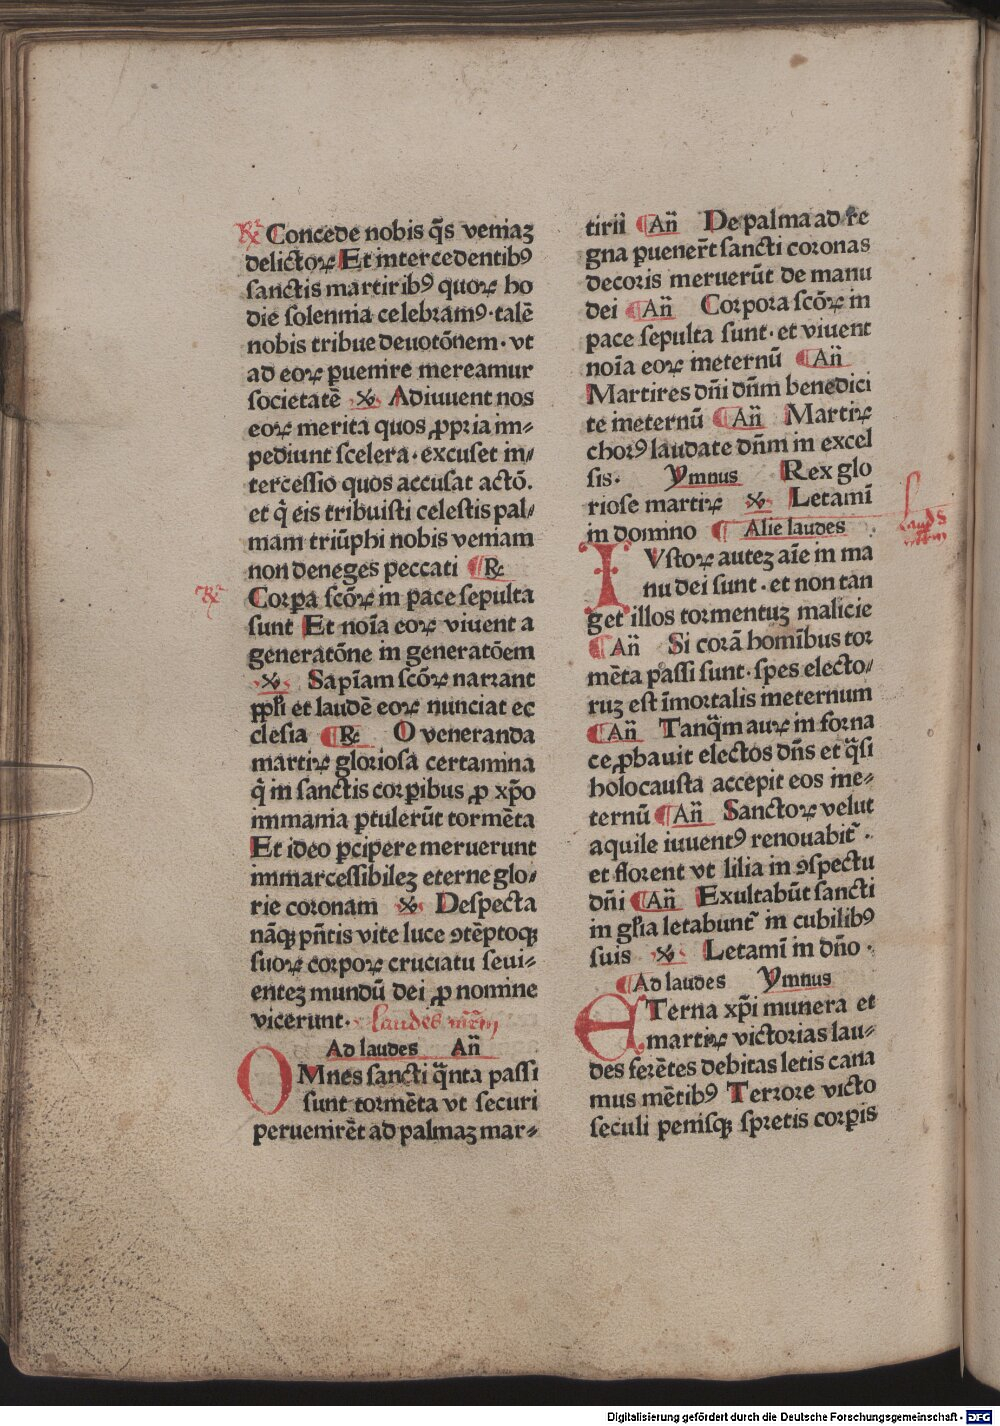 Concede nobis q̄s veniaꝫ
delictoꝝ Et intercedentibꝰ
sanctis martiribꝰ quoꝝ ho
die solennia celebramꝰ· talē
nobis tribue deuotōnem· vt
ad eoꝝ ꝑuenire mereamur
societatē ℣ Adiuuent nos
eoꝝ merita quos ꝓpria im⸗
pediunt scelera· excuset in⸗
tercessio quos accusat actō.
et q̄ eis tribuisti celestis pal⸗
mam triūphi nobis veniam
non deneges peccati ¶ ℟
Corꝑa scōꝝ in pace sepulta
sunt Et noīa eoꝝ viuent a
generatōne in generatōem
℣ Sapīam scōꝝ narrant
ppl̄i et laudē eoꝝ nunciat ec
clesia ¶ ℟ O veneranda
martiꝝ gloriosa certamina
q̄ in sanctis corꝑibus ꝓ xp̄o
immania ꝑtulerūt tormēta
Et ideo ꝑcipere meruerunt
immarcessibileꝫ eterne glo⸗
rie coronam ℣ Despecta
nāqꝫ pn̄tis vite luce ꝯtēptoqꝫ
suoꝝ corpoꝝ cruciatu seui⸗
enteꝫ mundū dei ꝓ nomine
vicerunt· laudes mr̄m
Ad laudes An̄
OMnes sancti q̄nta passi
sunt tormēta vt securi
peruenirēt ad palmaꝫ mar⸗
tirii ¶ An̄ De palma ad re
gna ꝑuener̄t sancti coronas
decoris meruerūt de manu
dei ¶ An̄ Corpora scōꝝ in
pace sepulta sunt· et viuent
noīa eoꝝ ineternū ¶ An̄
Martires dn̄i dn̄m benedici
te ineternū ¶ An̄ Martiꝝ
chorꝰ laudate dn̄m in excel
sis· Ymnus Rex glo
riose martiꝝ ℣ Letamī
in domino ¶ Alie laudes
IVstoꝝ auteꝫ aīe in ma
nu dei sunt· et non tan
get illos tormentuꝫ malicie
¶ An̄ Si corā homībus tor
mēta passi sunt· spes electo⸗
ruꝫ est īmortalis ineternum
¶ An̄ Tanq̄m auꝝ in forna
ce ꝓbauit electos dn̄s et q̄si
holocausta accepit eos ine⸗
ternū ¶ An̄ Sanctoꝝ velut
aquile iuuentꝰ renouabit᷑ ·
et florent vt lilia in ꝯspectu
dn̄i ¶ An̄ Exultabūt sancti
in gl̄ia letabunt᷑ in cubilibꝰ
suis ℣ Letamī in dn̄o ·
¶ Ad laudes Ymnus
ETerna xp̄i munera et
martiꝝ victorias lau⸗
des ferētes debitas letis cana
mus mētibꝰ Terrore victo
seculi penisqꝫ spretis corꝑis
Digitalisierung gefördert durch die Deutsche Forschungsgemeinschaft - DFG